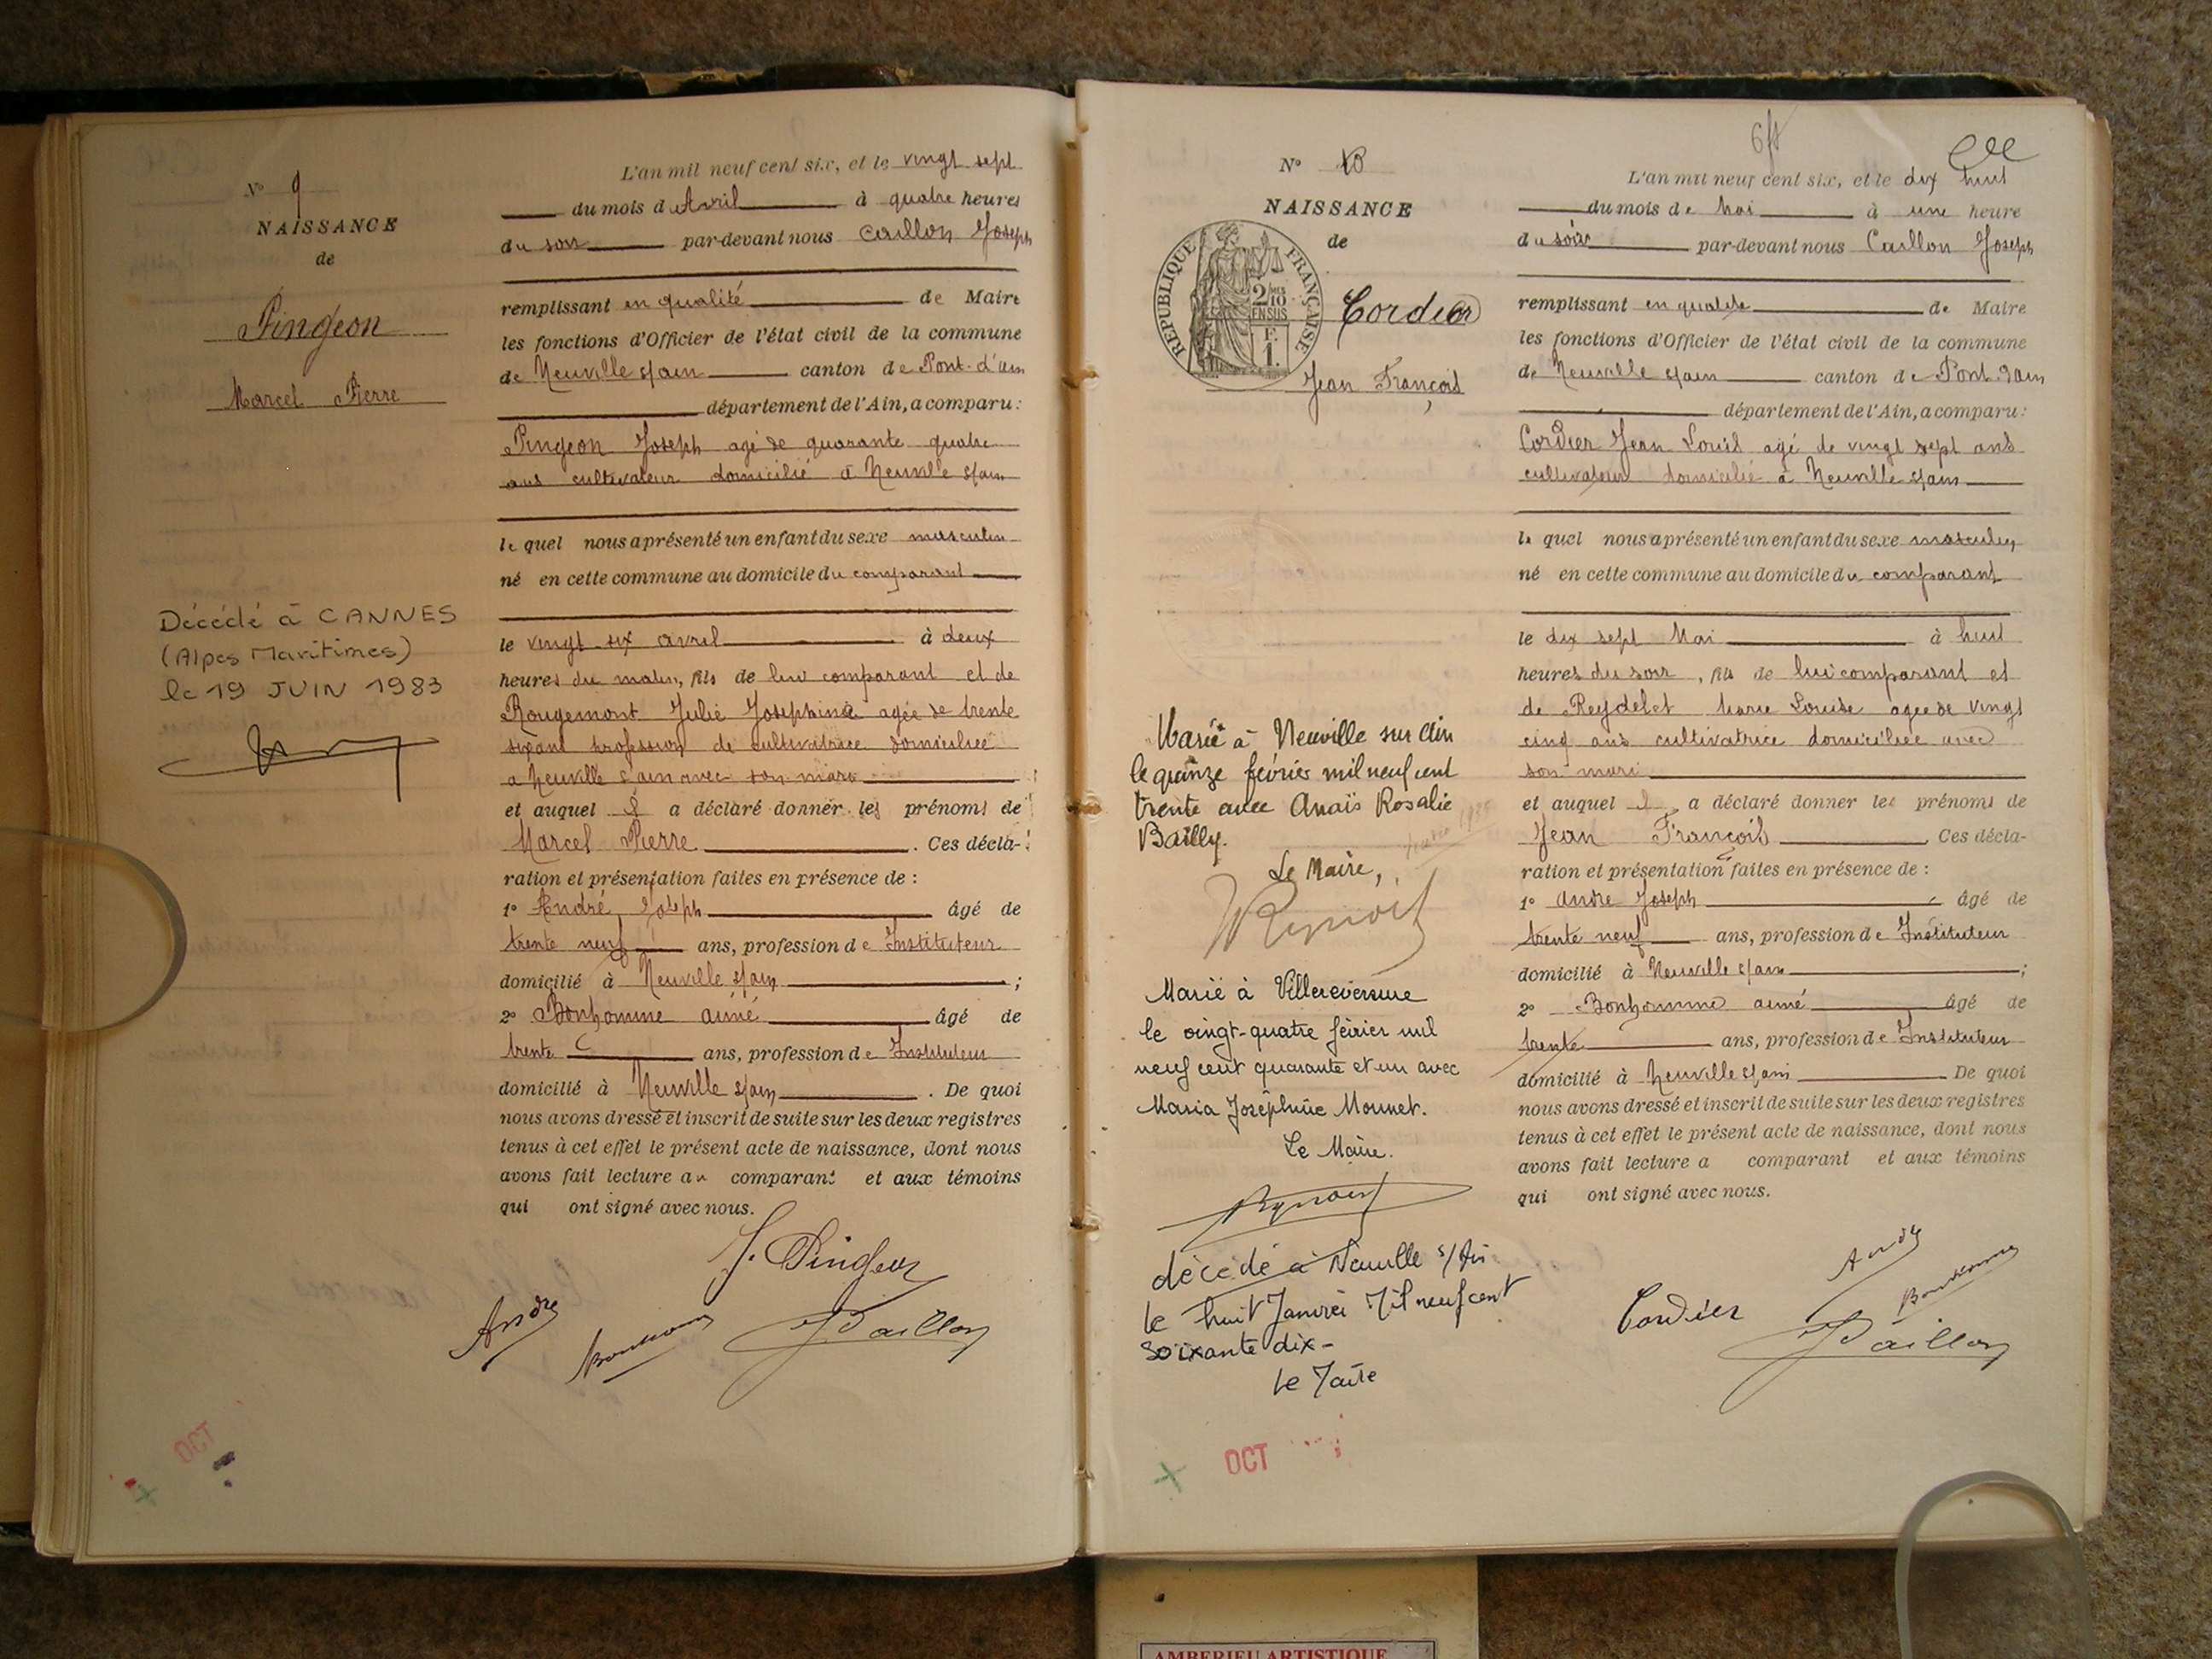 N° 9
NAISSANCE
de
Pingeon
Marcel Pierre
Décédé à CANNES
(Alpes Maritimes)
le 19 JUIN 1983
OCT
L'an mil neuf cent six, et le vingt sept
du mois d'Avril à quatre heures
du soir par-devant nous Caillon Joseph
remplissant en qualité de Maire
les fonctions d'Officier de l'état civil de la commune
de Neuville s/ain canton de Pont-d'ain
département de l'Ain, a comparu :
Pingeon Joseph agé de quarante quatre
ans cultivateur domicilié à Neuville s/ain
le quel nous a présenté un enfant du sexe masculin
né en cette commune au domicile du comparant
le vingt six avril à deux
heures du matin, fils de lui comparant et de
Rougemont Julie Josephine agée de trente
sixans profession de cultivatrice domiciliée
a Neuville s/ain avec son mari
et auquel il a déclaré donner les prénoms de
Marcel Pierre. Ces décla-
ration et présentation faites en présence de :
1° André Joseph âgé de
trente neuf ans, profession de Instituteur
domicilié à Neuville s/ain ;
2° Bonhomme aimé âgé de
trente ans, profession de Instituteur
domicilié à Neuville s/ain. De quoi
nous avons dressé et inscrit de suite sur les deux registres
tenus à cet effet le présent acte de naissance, dont nous
avons fait lecture au comparant et aux témoins
qui ont signé avec nous.
J. Pingeon
André
Bonhomme
J Caillon
N° 10
NAISSANCE
de
REPUBLIQUE FRANÇAISE
2/10 EN SUS
F.
1
Cordier
Jean François
Marié à Neuville sur Ain
le quinze février mil neuf cent
trente avec Anaïs Rosalie
Bailly.
Le Maire,
Marié à Villereversure
le vingt-quatre février mil
neuf cent quarante et un avec
Maria Joséphine Monnet.
Le Maire.
décédé à Neuville s/Ain
le huit Janvier Mil neuf cent
soixante dix -
Le Maire
OCT
L'an mil neuf cent six, et le dix huit
du mois de Mai à une heure
du soir par-devant nous Caillon Joseph
remplissant en qualité de Maire
les fonctions d'Officier de l'état civil de la commune
de Neuville s/ain canton de Pont d'ain
département de l'Ain, a comparu :
Cordier Jean Louis agé de vingt sept ans
cultivateur domicilié à Neuville s/ain
le quel nous a présenté un enfant du sexe masculin
né en cette commune au domicile du comparant
le dix sept Mai à huit
heures du soir, fils de lui comparant et
de Reydelet Marie Louise agée de vingt
cinq ans cultivatrice domiciliée avec
son mari
et auquel il a déclaré donner les prénoms de
Jean François Ces décla-
ration et présentation faites en présence de :
1° André Joseph âgé de
trente neuf ans, profession de Instituteur
domicilié à Neuville s/ain ;
2° Bonhomme aimé âgé de
trente ans, profession de Instituteur
domicilié à Neuville s/ain De quoi
nous avons dressé et inscrit de suite sur les deux registres
tenus à cet effet le présent acte de naissance, dont nous
avons fait lecture a comparant et aux témoins
qui ont signé avec nous.
André
Bonhomme
Cordier
J Caillon
AMBERIEU ARTISTIQUE